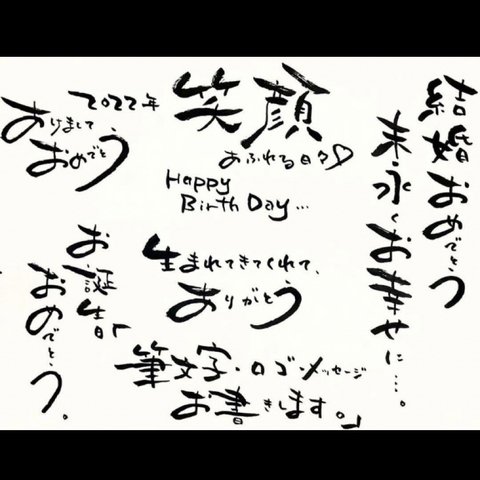 結婚おめでとう
末永くお幸せに…。
笑顔
あふれる日々♡
Happy
Birth Day…
2022年
あけまして
おめでとう
生まれてきてくれて、
ありがとう
お誕生日
おめでとう。
筆文字・ロゴ・メッセージ
お書きします。」